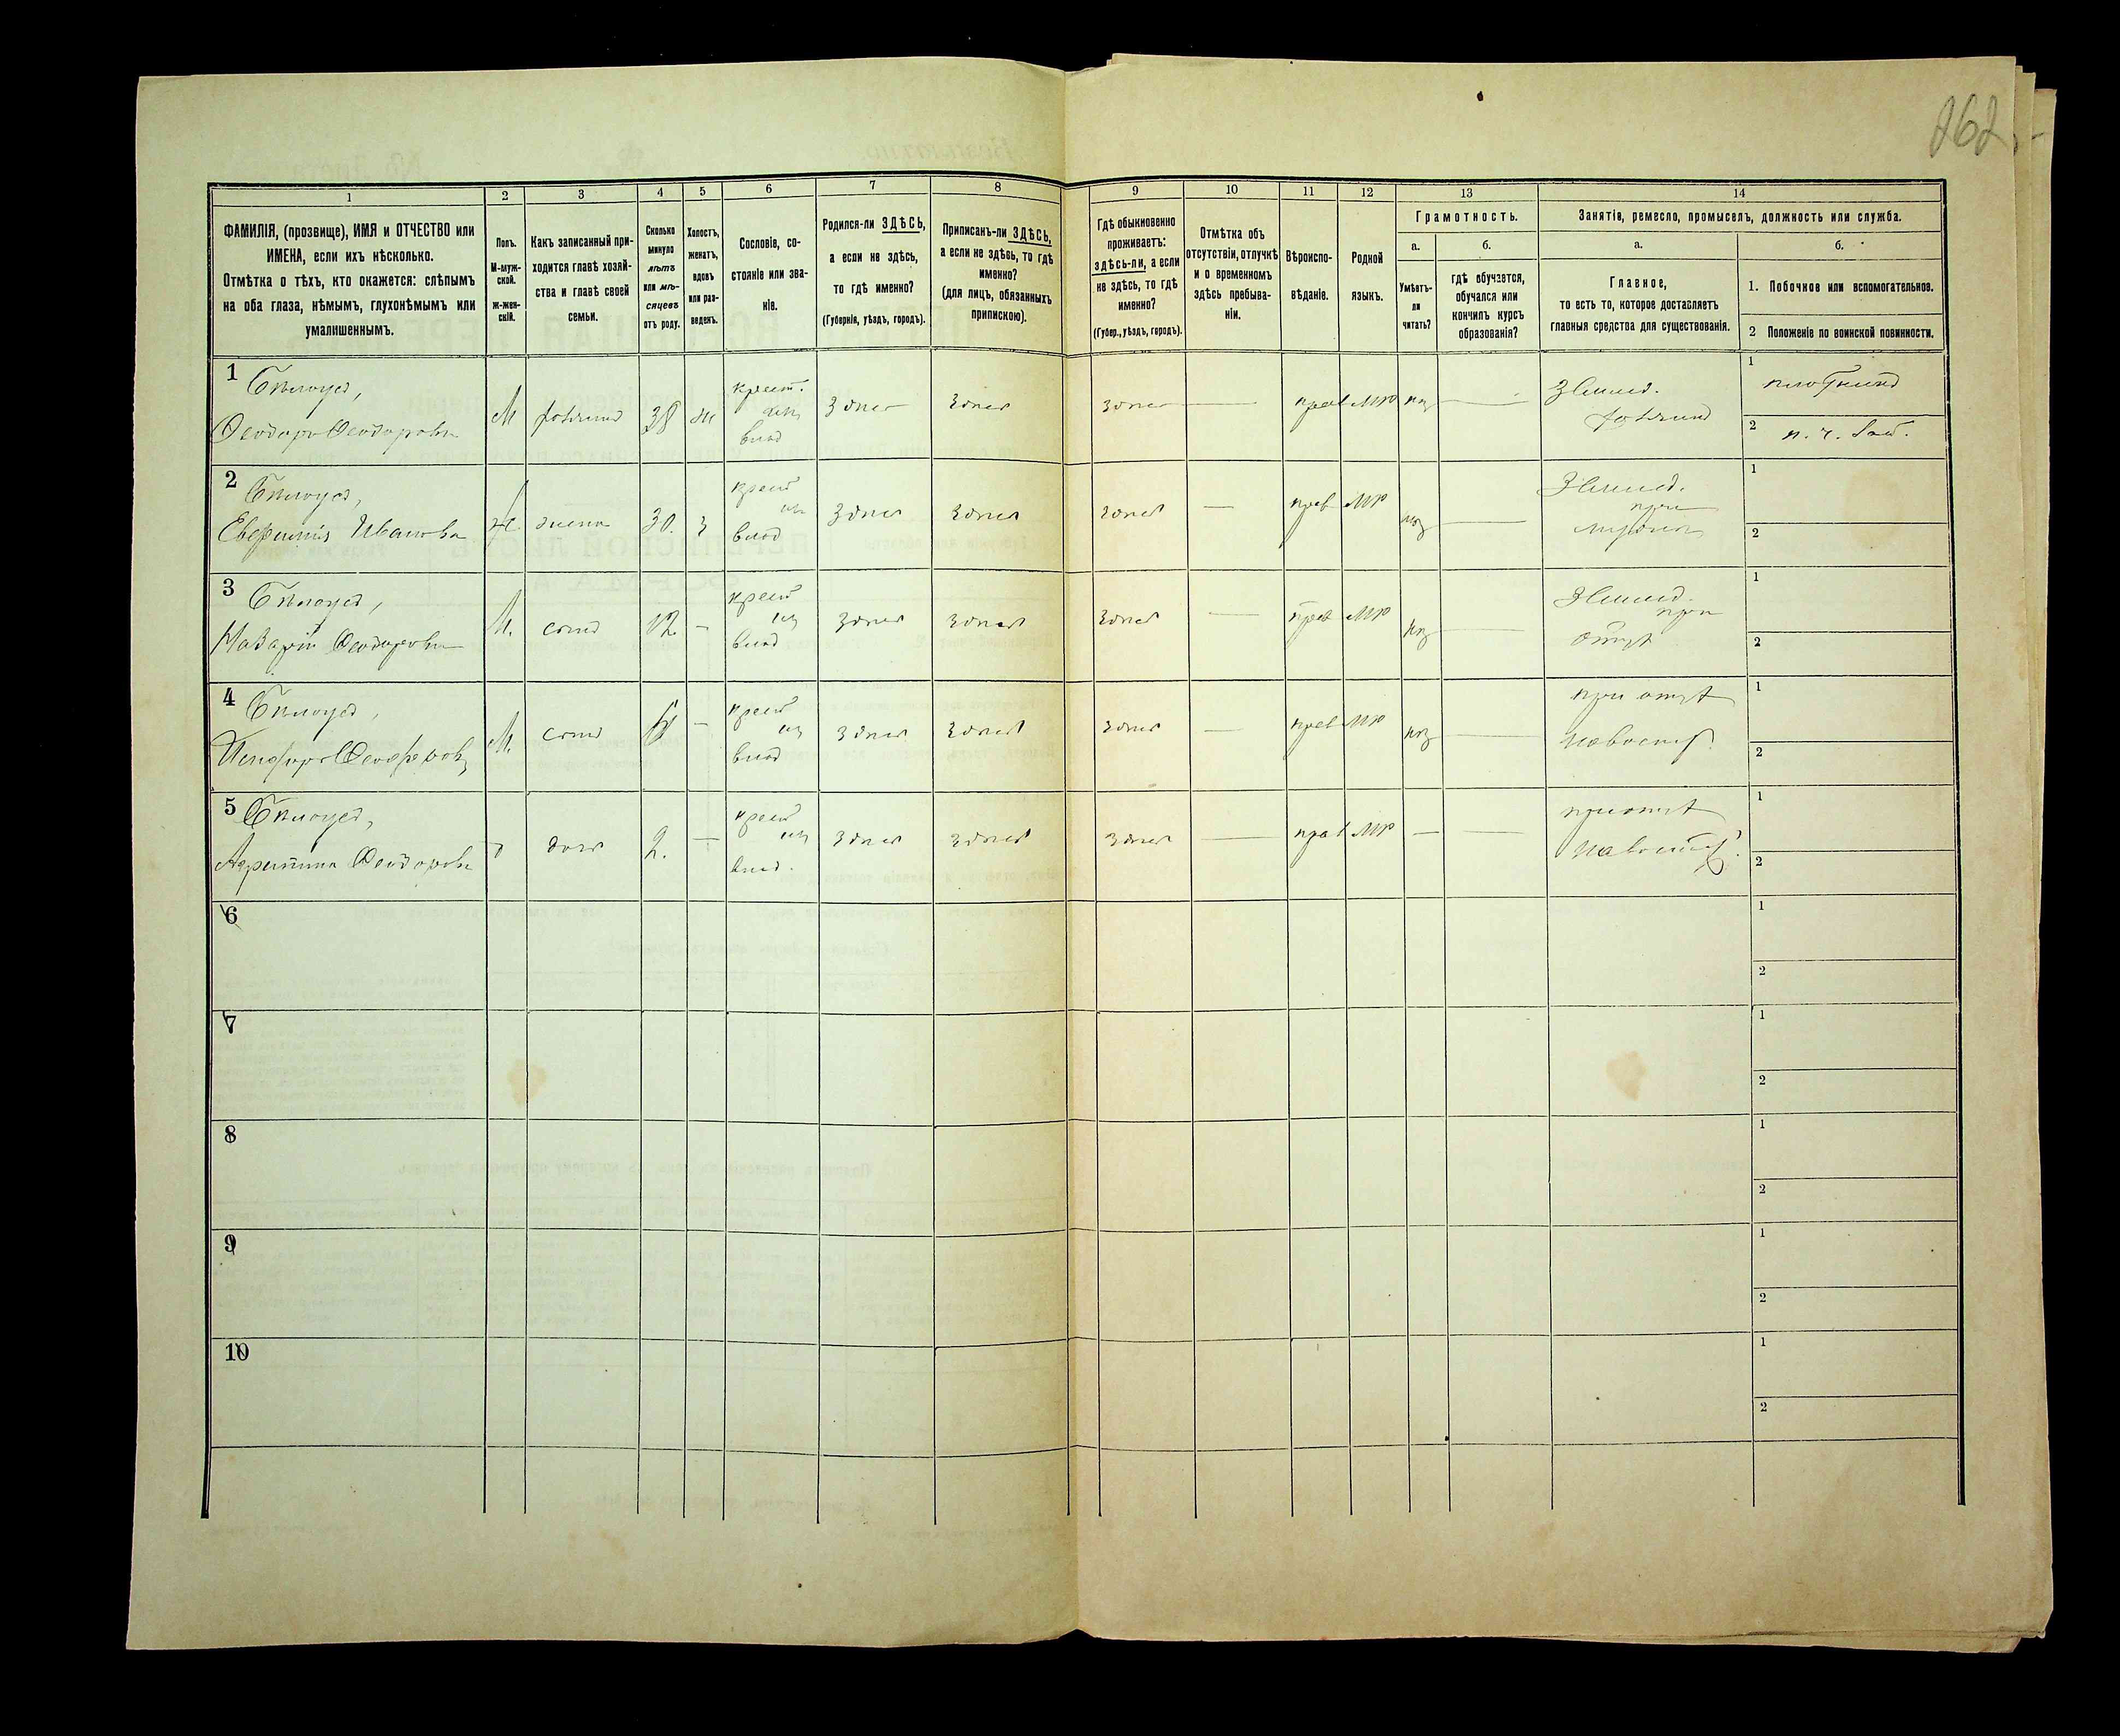 262
1 2 3 4 5 6 7 8 9 10 11 12 13 14
ФАМИЛІЯ, (прозвище), ИМЯ и ОТЧЕСТВО или
ИМЕНА, если ихъ нѣсколько.
Отмѣтка о тѣхъ, кто окажется: слѣпымъ
на оба глаза, нѣмымъ, глухонѣмымъ или
умалишеннымъ.
Полъ.
М-муж-
ской.
Ж-жен-
скій.
Какъ записанный при-
ходится главѣ хозяй-
ства и главѣ своей
семьи.
Сколько
минуло
лѣтъ
или мѣ-
сяцевъ
отъ роду.
Холостъ,
женатъ,
вдовъ
или раз-
веденъ.
Сословіе, со-
стояніе или зва-
ніе.
Родился-ли ЗДѢСЬ,
а если не здѣсь,
то гдѣ именно?
(Губернія, уѣздъ, городъ).
Приписанъ-ли ЗДѢСЬ,
а если не здѣсь, то гдѣ
именно?
(для лицъ, обязанныхъ
припискою).
Гдѣ обыкновенно
проживаетъ:
здѣсь-ли, а если
не здѣсь, то гдѣ
именно?
(Губер., уѣздъ, городъ).
Отмѣтка объ
отсутствіи, отлучкѣ
и о временномъ
здѣсь пребыва-
ніи.
Вѣроиспо-
вѣданіе.
Родной
языкъ.
Грамотность.
а.
Умѣетъ-
ли
читать?
б.
гдѣ обучается,
обучался или
кончилъ курсъ
образованія?
Занятія, ремесло, промыселъ, должность или служба.
а.
Главное,
то есть то, которое доставляетъ
главныя средства для существованія.
б.
1. Побочное или вспомогательное.
2 Положеніе по воинской повинности.
1 Бѣлоусъ,
Феодоръ Феодоровъ
М хозяинъ 38 ж
крест.
влад
здѣсь здѣсь здѣсь — прав мр нѣ —
Землед.
хозяинъ
1 плотникъ
2
2 Бѣлоусъ,
Евфимія Иванова
Ж. жена 30. з
крест
из
влад
здѣсь здѣсь здѣсь — прав мр нѣ —
Землед.
при
мужѣ
1
2
3 Бѣлоусъ,
Назарій Феодоровъ
М. сынъ 12 -
крест
из
влад
здѣсь здѣсь здѣсь — прав мр нѣ —
Землед.
при
отцѣ
1
2
4 Бѣлоусъ,
М. сынъ -
крест
из
влад
здѣсь здѣсь здѣсь — прав мр нѣ —
при отцѣ
1
2
5 Бѣлоусъ,
Феодорова
дочь 2. —
крест
из
влад.
здѣсь здѣсь здѣсь — прав мр — —
при отцѣ
1
2
6
1
2
7
1
2
8
1
2
9
1
2
10
1
2